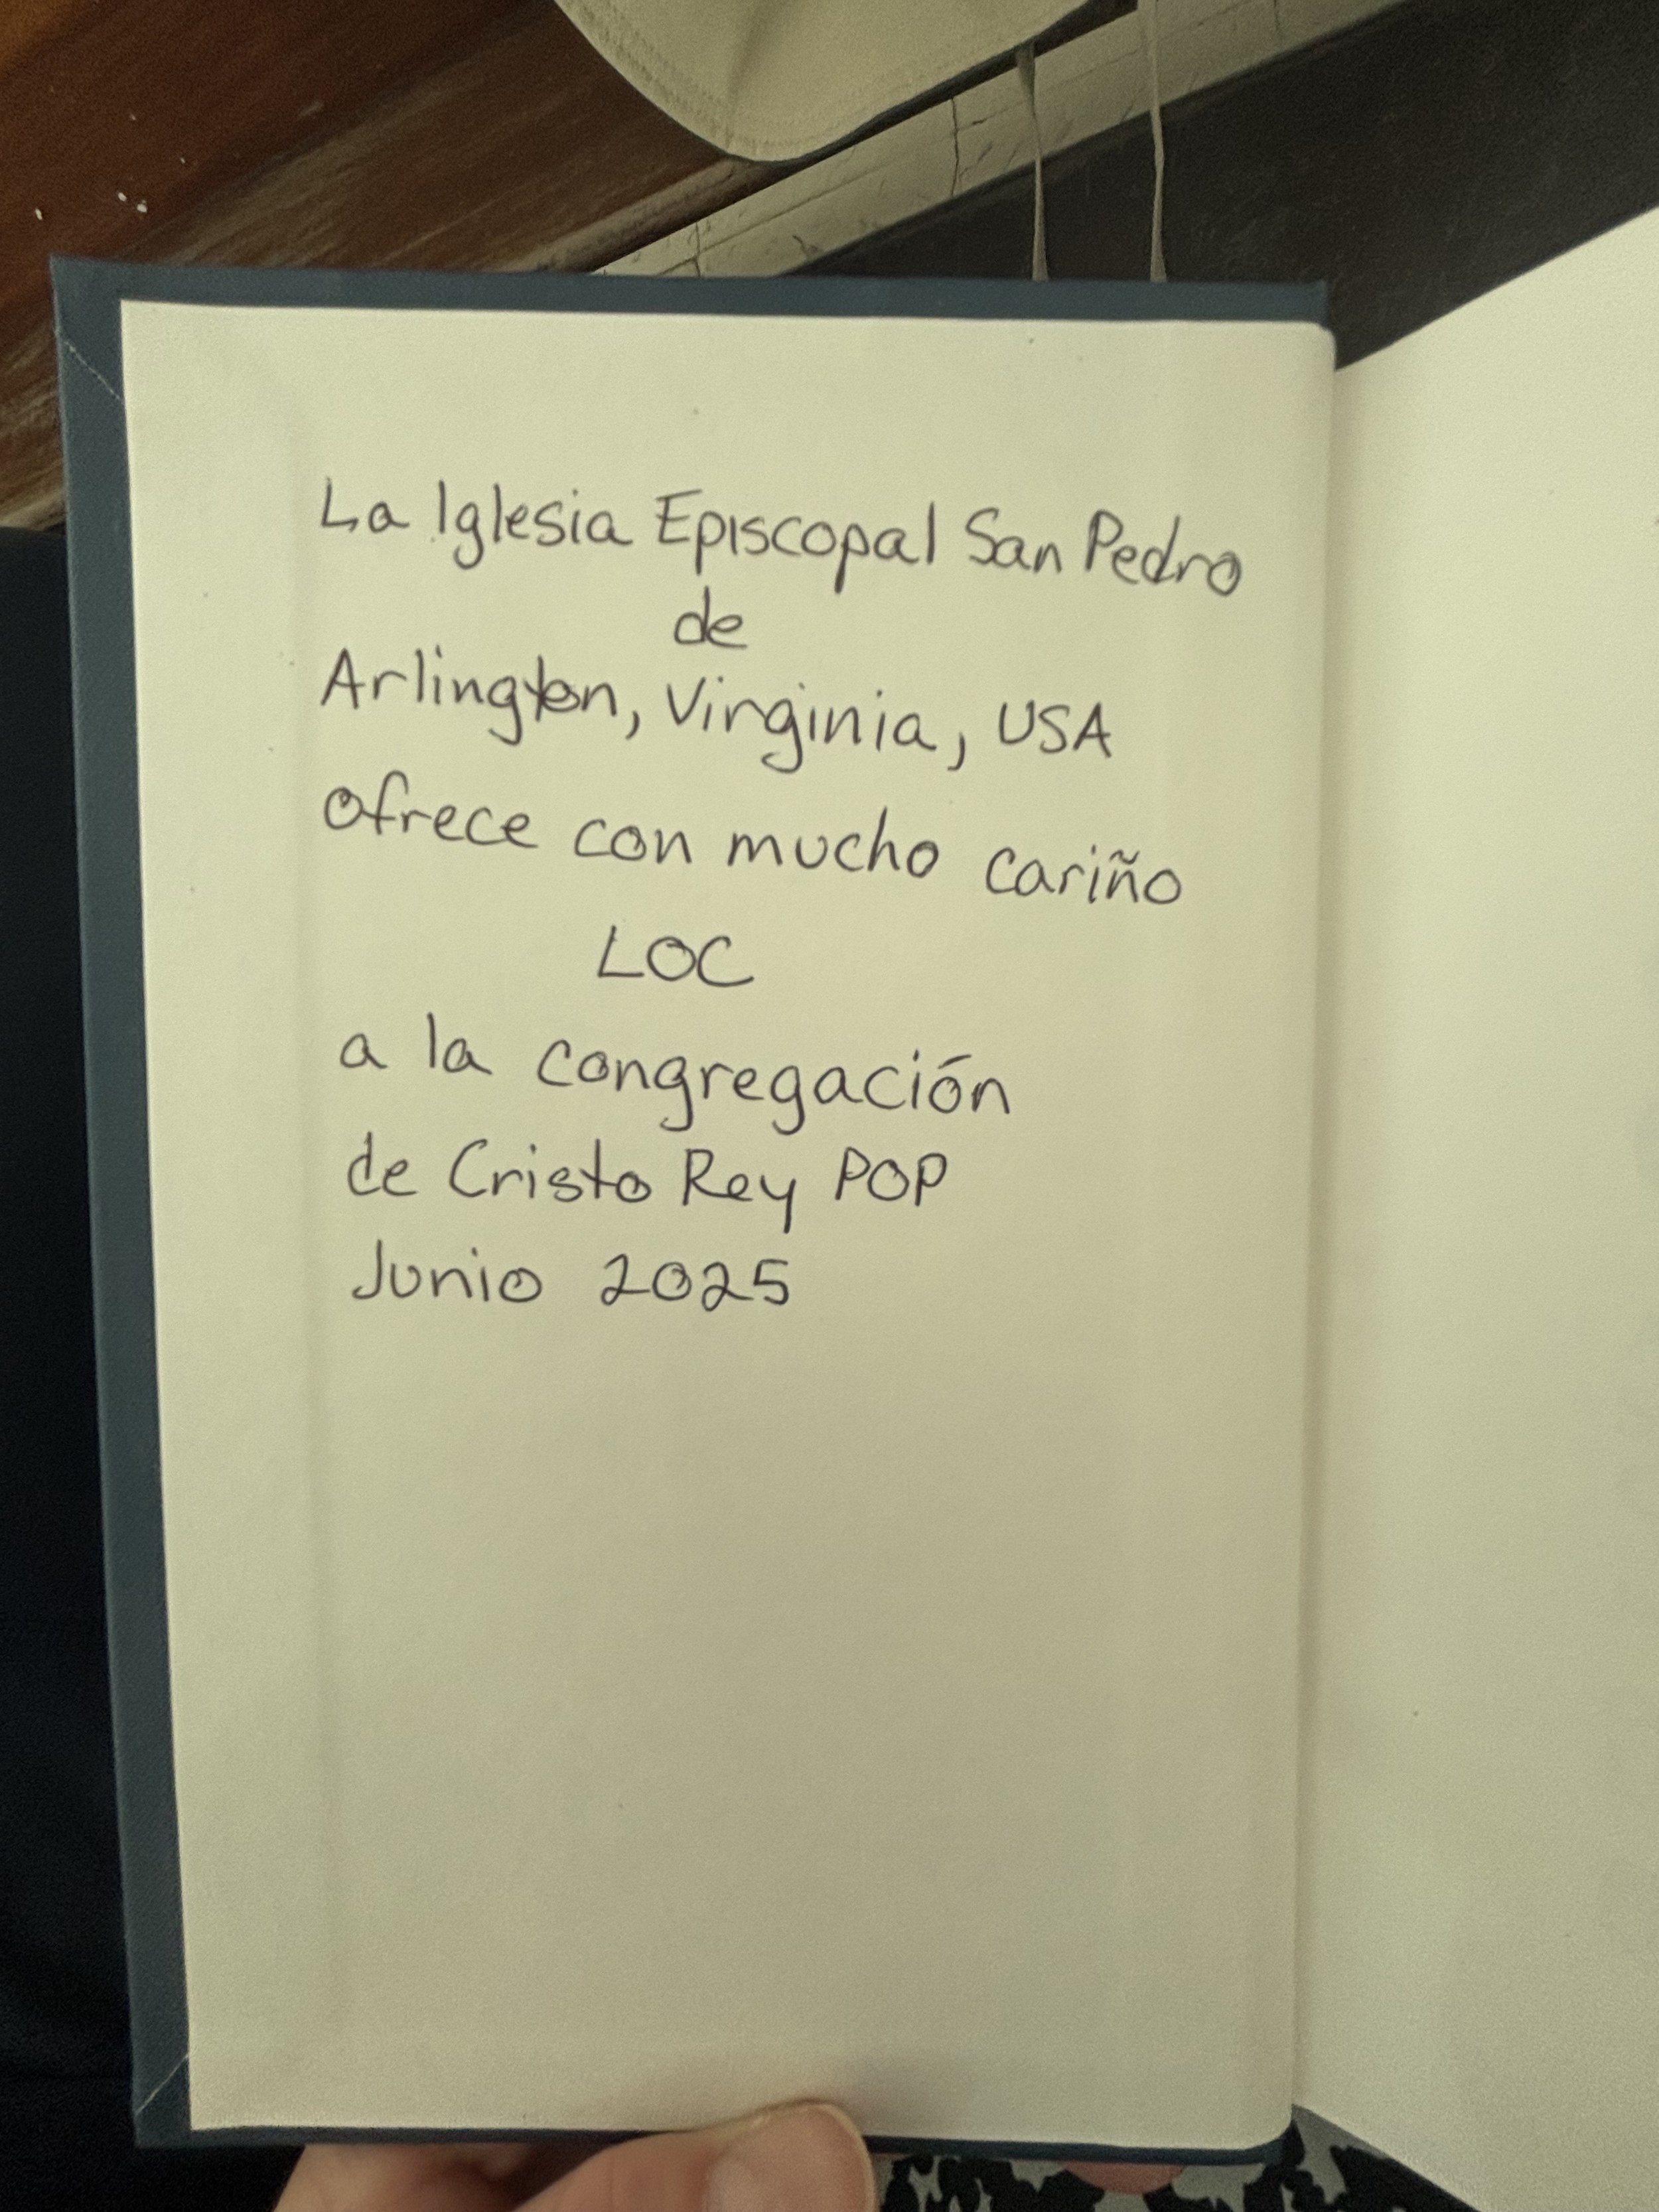 La Iglesia Episcopal San Pedro
de
Arlington, Virginia, USA
ofrece con mucho cariño
LOC
a la congregación
de Cristo Rey POP
Junio 2025